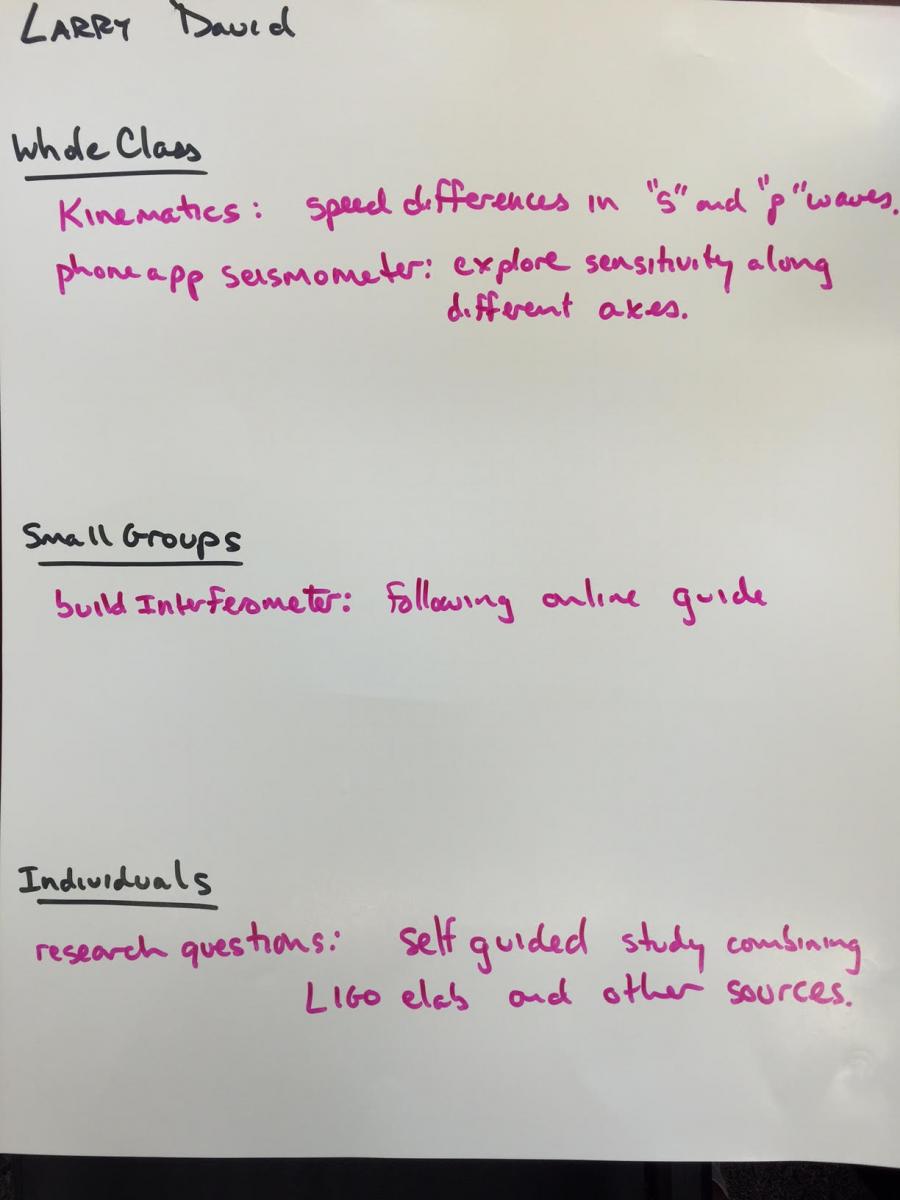 LARRY David
Whole Class
Kinematics: speed differences in "s" and "p" waves.
phone app seismometer: explore sensitivity along
different axes.
Small Groups
build Interferometer: following online guide
Individuals
research questions: self guided study combining
LIGO elab and other sources.